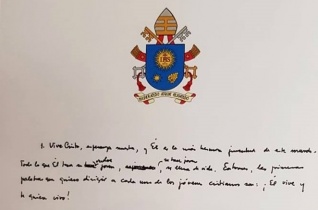 IHS
MISERANDO ATQUE ELIGENDO
1. Vive Cristo, esperanza nuestra, y Él es la más hermosa juventud de este mundo.
Todo lo que Él toca se vuelve joven, se hace nuevo, se llena de vida. Entonces, las primeras
palabras que quiero dirigir a cada uno de los jóvenes cristianos son: ¡Él vive y
te quiere vivo!